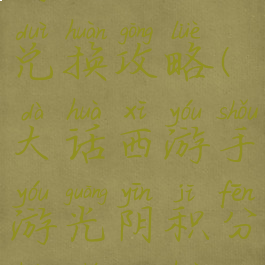 duì huàn gōng lüè
兑换攻略(
dà huà xī yóu shǒu
大话西游手
yóu guāng yīn jī fēn
游光阴积分